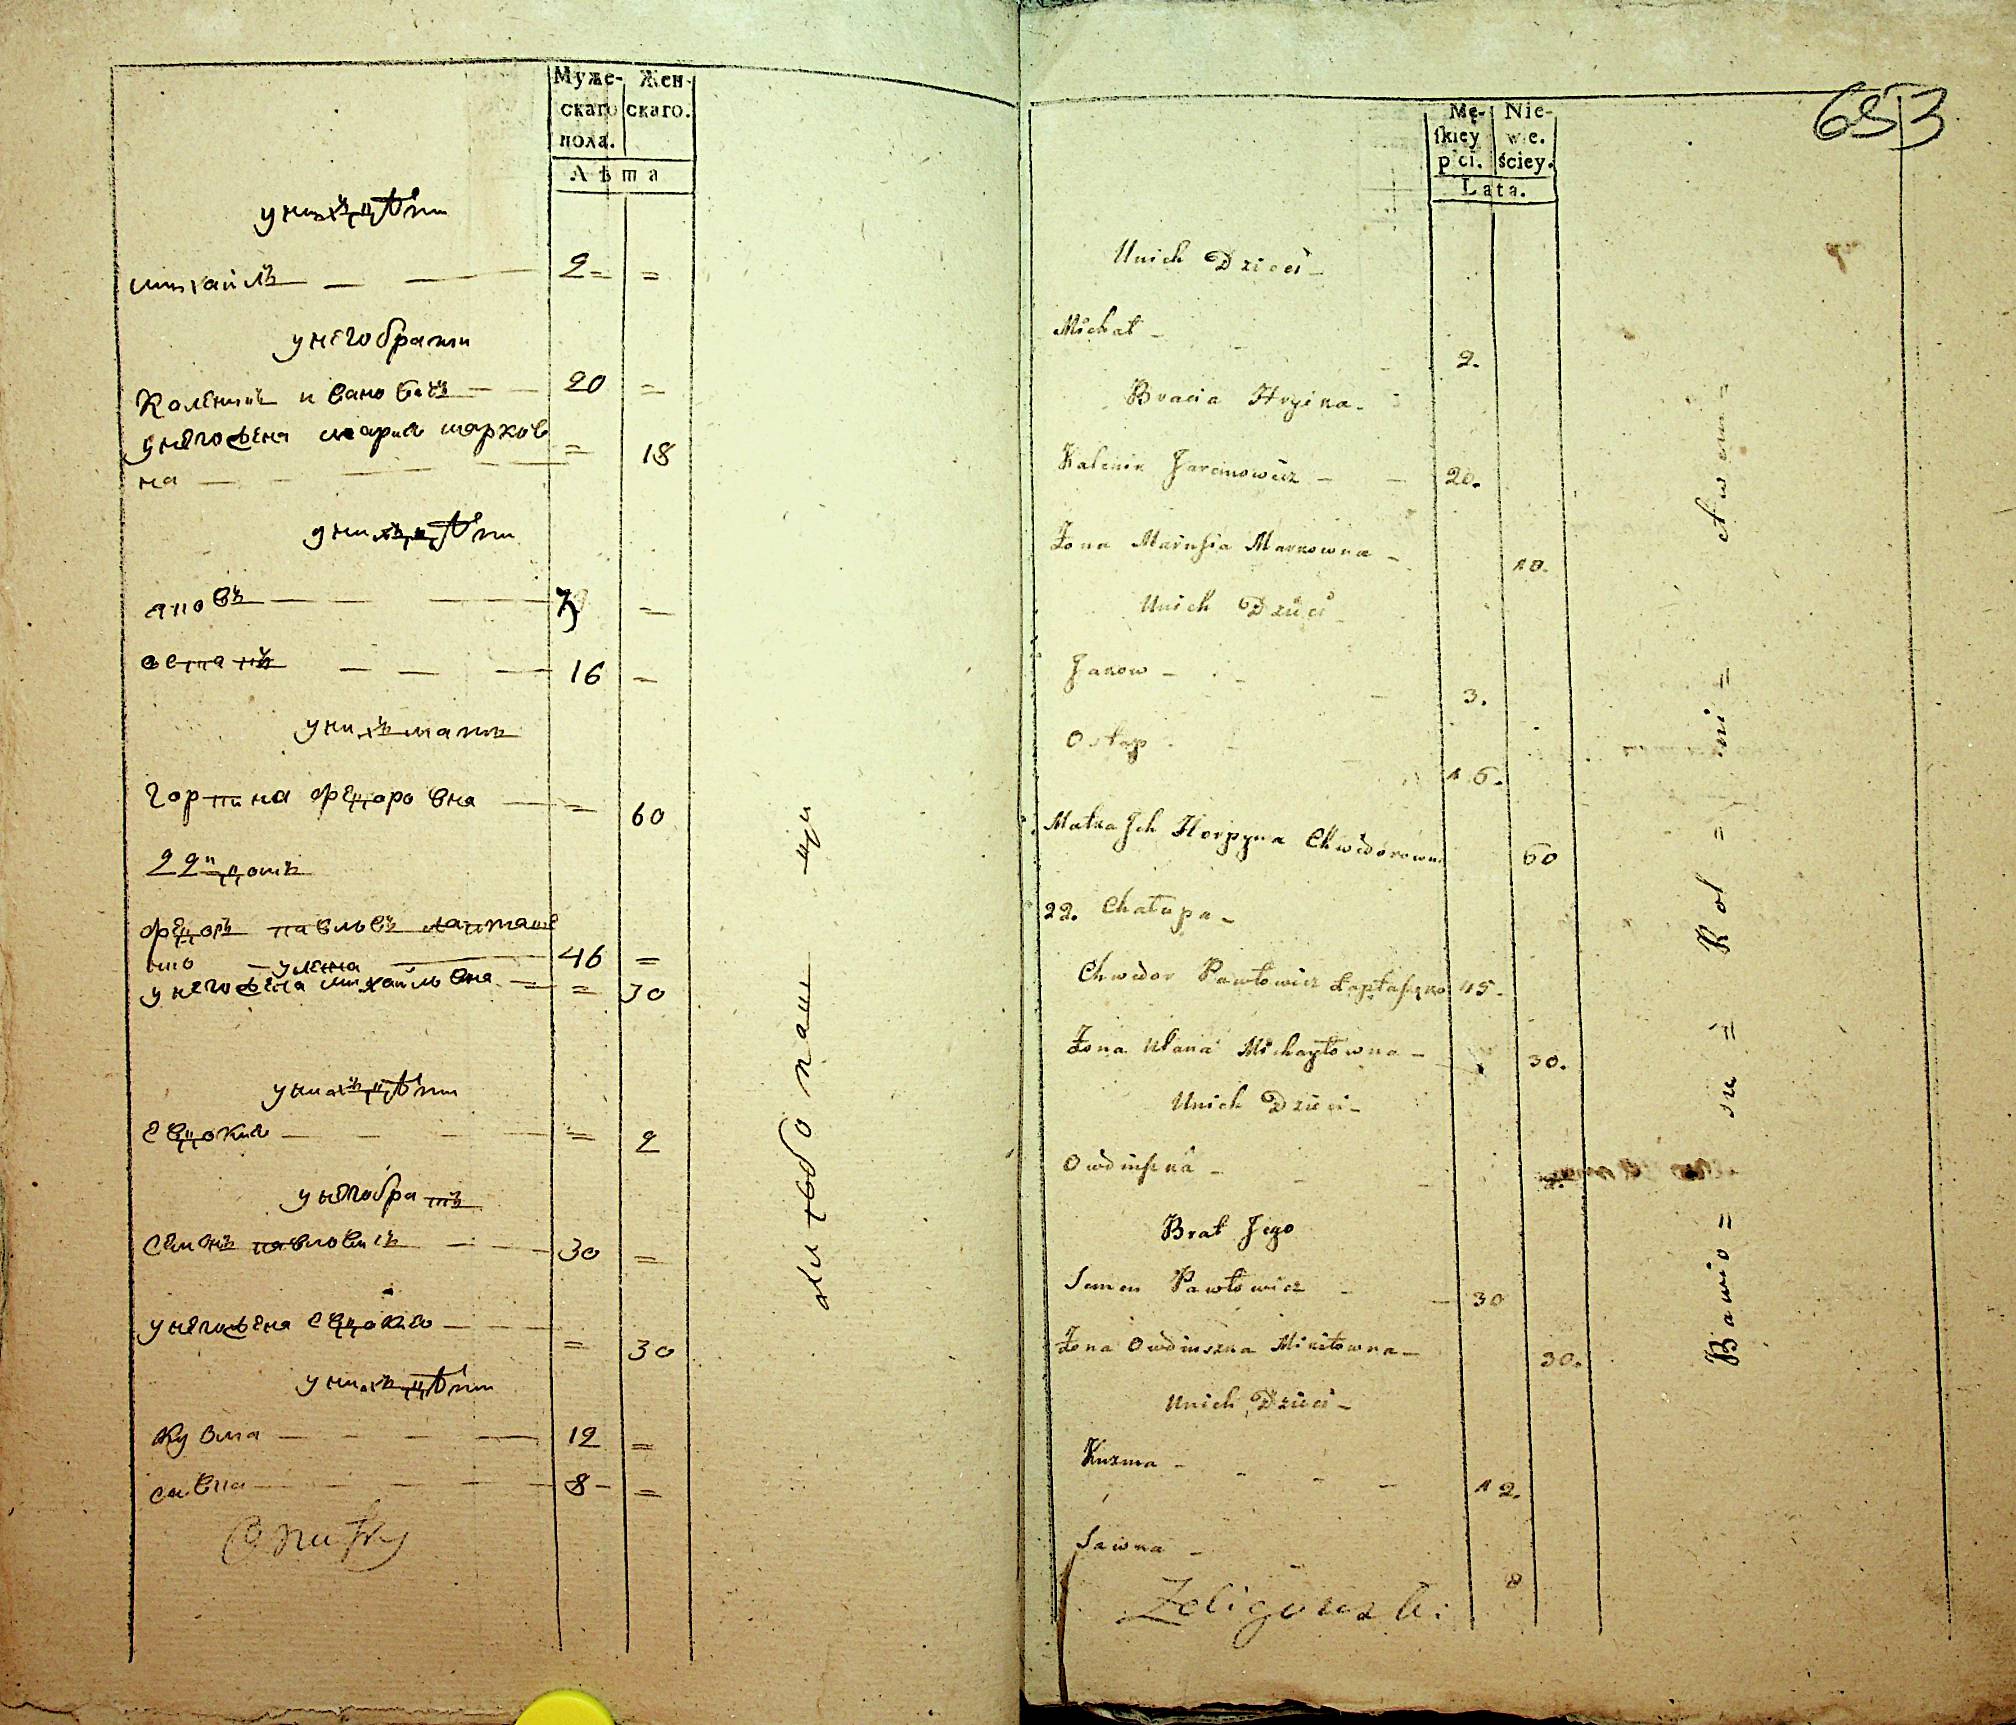 Муже-
скаго
пола.
Жен-
скаго.
Лѣта
у нихъ дѣти
михаилъ — — — 2 = =
у него братьи
Каленикъ Ивановичъ — — 20 =
у него жена мария марков
на — — — = 18
у нихъ дѣти
яковъ — — — 3 =
астапъ — — — 16 =
у нихъ мать
горпина федоровна — = 60
22й домъ
федоръ павловъ лапташе
нко — 46 =
улияна
у него жена михайловна = = 30
у нихъ дѣти
евдокия — — — = 2
у него братъ
семенъ павловичъ — — 30 =
у него жена евдокия — — = 30
у нихъ дѣти
кузма — — — — 12 =
савка — — — — 8 - =
653
Mę-
ſkiey
płci.
Nie-
wie.
ściey.
Lata.
Unich Dzieci -
Michał - - - 2.
Bracia Hryćka -
Kalenik Jwanowicz - - 20.
Żona Marusia Markowna - 18.
Unich Dzieci
Jakow - - - 3.
Ostap - - 16.
Matka Jch Horpyna Chwedorowna 60
22. Chałupa -
Chwedor Pawłowicz Łaptaszenko 45.
Żona Ulana Michayłowna - 30.
Unich Dzieci -
Owdiuszka - - - 2.
Brat Jego
Semen Pawłowicz - - 30
Żona Owdiuszka Mikitowna - 30.
Unich Dzieci -
Kuzma - - - - 12.
Sawka - - 8